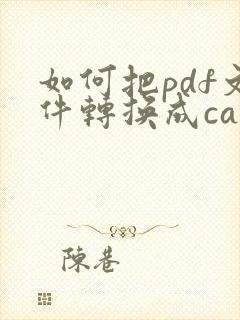 如何把pdf文
件轉換成ca
陳巷